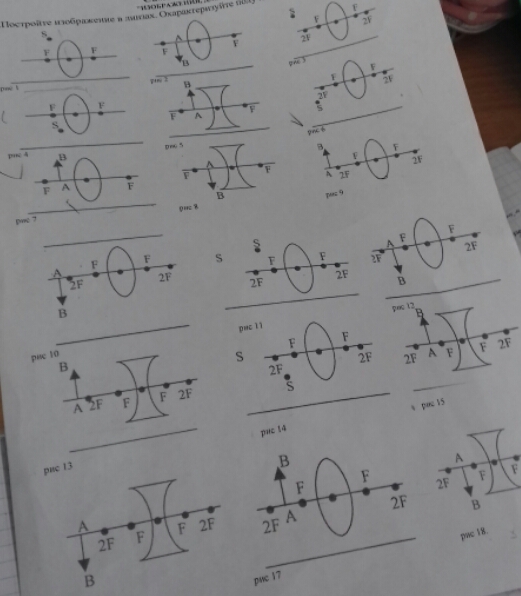 "ИЗОБРАЖЕНИЯ,
Постройте изображение в линзах. Охарактеризуйте
S F F
рис 1
F A B F
рис 2
S 2F F F 2F
рис 3
F S F
рис 4
B F A F
рис 5
2F S F F 2F
рис 6
B F A F
рис 7
F A B F
рис 8
B A 2F F F 2F
рис 9
A 2F F F 2F B
рис 10
S S 2F F F 2F
рис 11
2F A F B F 2F
рис 12
B A 2F F F 2F
рис 13
S 2F F S F 2F
рис 14
B 2F A F F 2F
рис 15
A 2F F F 2F B
B 2F F A F 2F
рис 17
2F A F B F
рис 18.